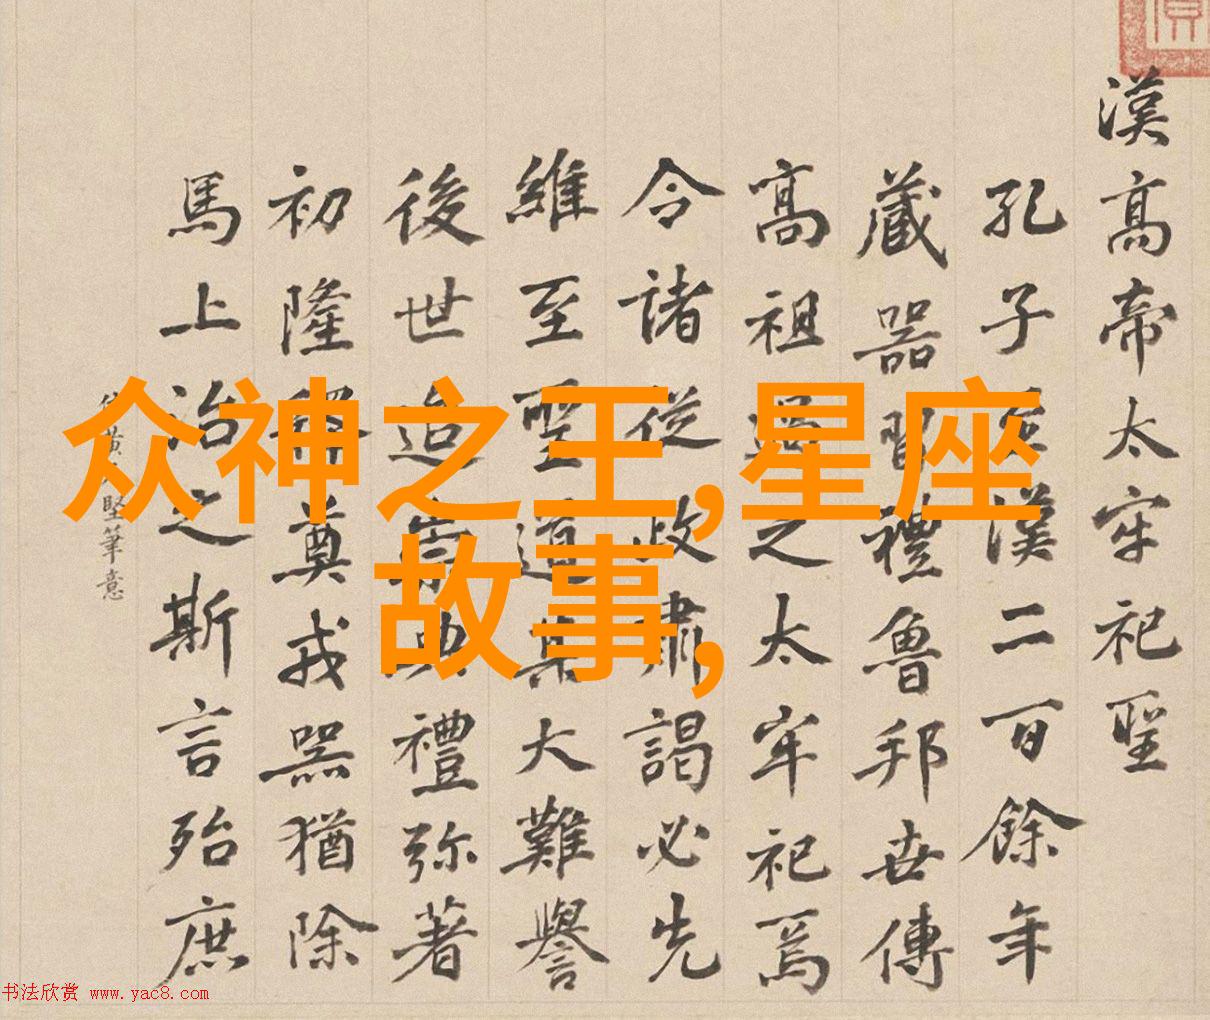 众神之王,星座
故事,
漢高帝太牢祀聖
孔子漢二百餘年
藏器習禮魯邦世傳
高祖過之太牢祀焉
令諸從政肅謁必先
維至聖道其大難譽
後世追崇典禮弥著
初隆釋奠戎器猶除
馬上治之斯言殆庶
黃堅筆意
书法欣赏 www.yac8.com